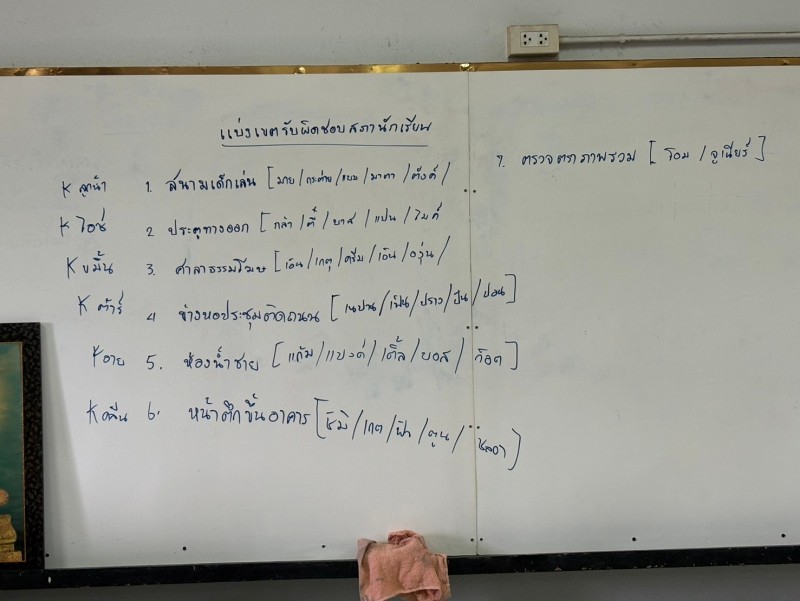 แบ่งเขตรับผิดชอบสภานักเรียน
K ลูกน้ำ 1. สนามเด็กเล่น [มาย/กระต่าย/แชม/มาดา/ตังค์/
K ไอซ์ 2 ประตูทางออก [กล้า/ตี้/บาส/แปน/ไมค์
K ขมิ้น 3. ศาลาธรรมโฆษ [เอิน/เกตุ/ครีม/เอิน/องุ่น/
K ต้าร์ 4 ข้างหอประชุมติดถนน [เนปาน/เฟิน/ปราง/ปัน/ปอน]
K อาย 5. ห้องน้ำชาย [แก้ม/แบงค์/เติ้ล/บอส/ก๊อต]
K คลีน 6. หน้าตึกขึ้นอาคาร [ชิมิ/เกต/ฟ้า/ตูน/
7. ตรวจตราภาพรวม [โอม/จูเนียร์]